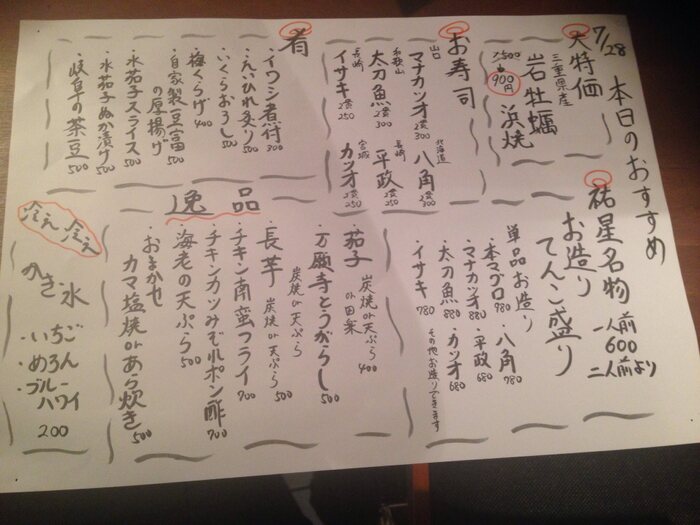 7/28 本日のおすすめ
大特価
三重県産
岩牡蠣 浜焼
1500
900円
祐星名物
お造り
てんこ盛り
一人前
600
二人前より
お寿司
山口
マナカツオ 2貫 300
北海道
八角 2貫 300
和歌山
太刀魚 2貫 300
長崎
平政 2貫 250
長崎
イサキ 2貫 250
宮城
カツオ 2貫 250
単品お造り
・本マグロ 980
・八角 780
・マナカツオ 880
・平政 680
・太刀魚 880
・カツオ 680
・イサキ 780
その他お造りできます
肴
・イワシ煮付 300
・えいひれ炙り 500
・いくらおろし 500
・梅くらげ 400
・自家製豆富の厚揚げ 500
・水茄子スライス 500
・水茄子ぬか漬け 500
・岐阜の茶豆 500
逸品
・茄子 炭焼 or 天ぷら or 田楽 400
・万願寺とうがらし 500
炭焼 or 天ぷら
・長芋 炭焼 or 天ぷら 500
・チキン南蛮フライ 700
・チキンカツみぞれポン酢 700
・海老の天ぷら 500
・おまかせ
カマ塩焼 or あら炊き 500
冷え冷え
かき氷
・いちご
・めろん
・ブルーハワイ
200